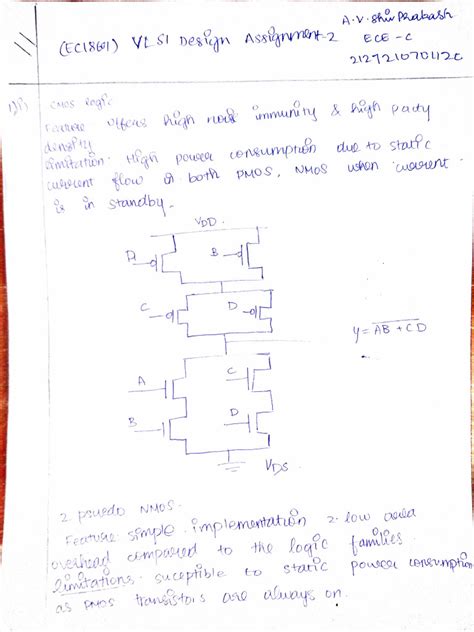 A.V. Shiv Prabash
(EC18601) VLSI Design Assignment-2 ECE - C
212721070112C
CMOS logic
Feature offers high noise immunity & high
density
limitation. High power consumption due to static
current flow of both PMOS, NMOS when current
is in standby.
VDD
A B
C D
y = AB + CD
A C
B D
VDS
2 psuedo NMOS.
Feature simple implementation 2. low area
overhead compared to the logic families
limitations. suceptible to static power consumption
as PMOS transistors are always on.